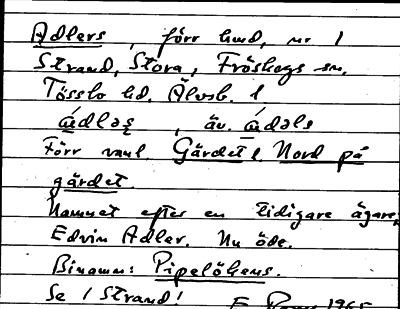 Adlers, förr hmd, nr 1
Strand, Stora, Fröskogs sn.
Tössbo hd. Älvsb. l
ádləʂ, äv. ádəls
Förr vanl. Gärdet l. Nord på
gärdet.
Namnet efter en tidigare ägare,
Edvin Adler. Nu öde.
Binamn: Pipelökens.
Se / Strand!
1965